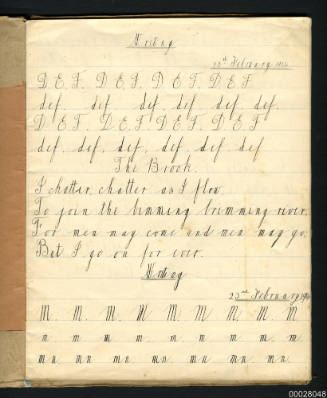 Writing
February
D. E. F. D. E. F. D. E. F. D. E. F.
def. def. def. def. def. def.
D. E. F. D. E. F. D. E. F. D. E. F.
def. def. def. def. def. def.
The Brook.
I chatter, chatter as I flow
To join the brimming river,
For men may come and men may go,
But I go on for ever.
Writing
23rd February
M. M. M. M. M. M. M. M.
m. m. m. m. m. m. m. m.
mn mn mn mn mn mn mn
00028048